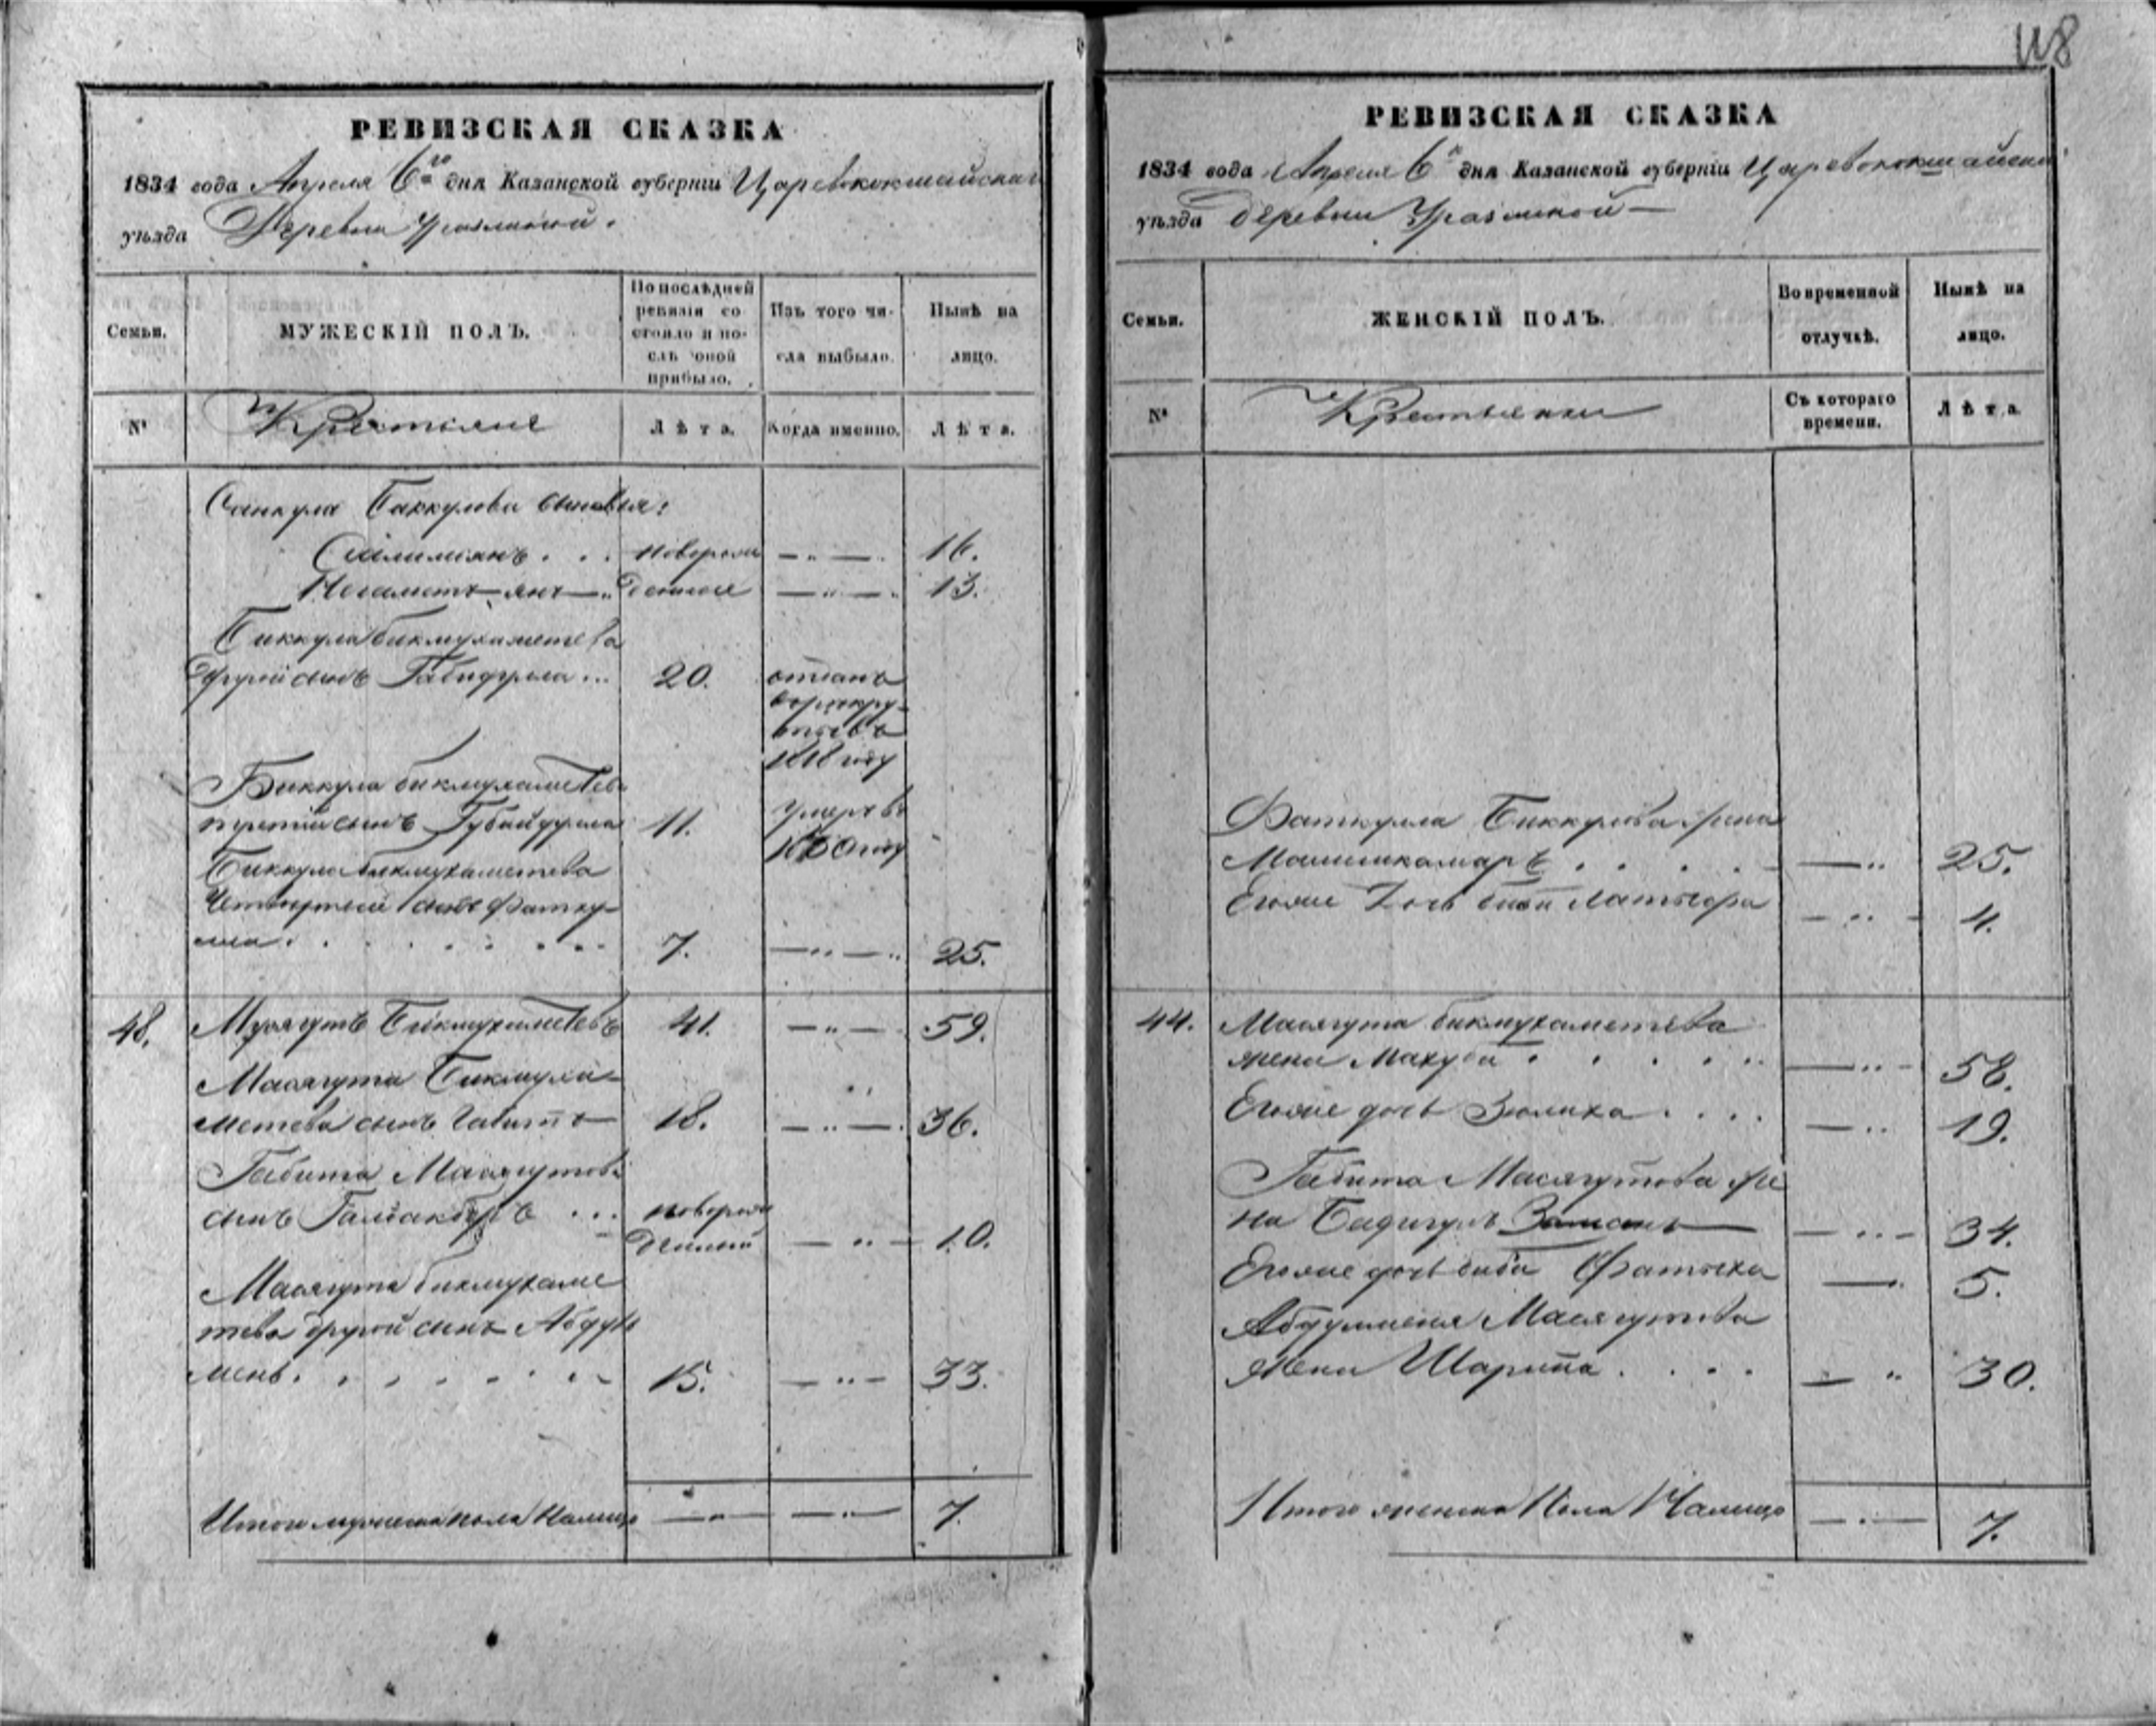 118
РЕВИЗСКАЯ СКАЗКА
1834 года Апреля 6го дня Казанской губерніи Царевококшайскаго
уѣзда Деревни Уразлиной.
Семьи.
МУЖЕСКІЙ ПОЛЪ.
По послѣдней
ревизіи со
стояло и по-
слѣ оной
прибыло.
Изъ того чи-
сла выбыло.
Нынѣ на
лицо.
№
Крестьяне
Лѣта.
Когда именно.
Лѣта.
Санкула Баккулова сыновья:
Салимянъ . . . новорож — „ — 16.
Негаметъ-янъ — „ денные — „ — 13.
Биккула бикмухаметева
другой сынъ Габидулла ... 20. отданъ
в рекру-
ты въ
1818 году
Биккула бикмухаметева
третий сынъ Губайдулла 11. умеръ в
1830 году
Биккула бикмухаметева
Четвертый сынъ Фатку-
лла . . . . . . 7. — „ — „ 25.
48. Мусягутъ Бикмухаметевъ 41. — „ — 59.
Масягута Бикмуха-
метева сынъ Габитъ 18. — „ — 36.
Габита Масягутова
сынъ Галіакберъ ... новорож
денный — „ — 10.
Масягута бикмухаме
тева другой сынъ Абдул
менъ . . . . . . 15. — „ — 33.
Итого мужеска пола налицо — „ — — „ — 7.
РЕВИЗСКАЯ СКАЗКА
1834 года Апреля 6го дня Казанской губерніи Царевококшайскаго
уѣзда Деревни Уразлиной —
Семьи.
ЖЕНСКІЙ ПОЛЪ.
Во временной
отлучкѣ.
Нынѣ на
лицо.
№
Крестьянки
Съ котораго
времени.
Лѣта.
Фаткулла Биккулова жена
Машикамаръ . . . . — „ 25.
Егоже Дочь биби Латыфа — „ — 4.
44. Масягута бикмухаметева
жена Махуба . . . . . — „ — 58.
Егоже дочь Зюлиха . . . . — „ 19.
Габита Масягутова же
на Бадигулъ Заманъ — — „ — 34.
Егоже дочь биби Фатыха — „ 5.
Абдулменя Масягутова
жена Шарипа . . . . — „ 30.
Итого женска Пола Налицо — „ — 7.